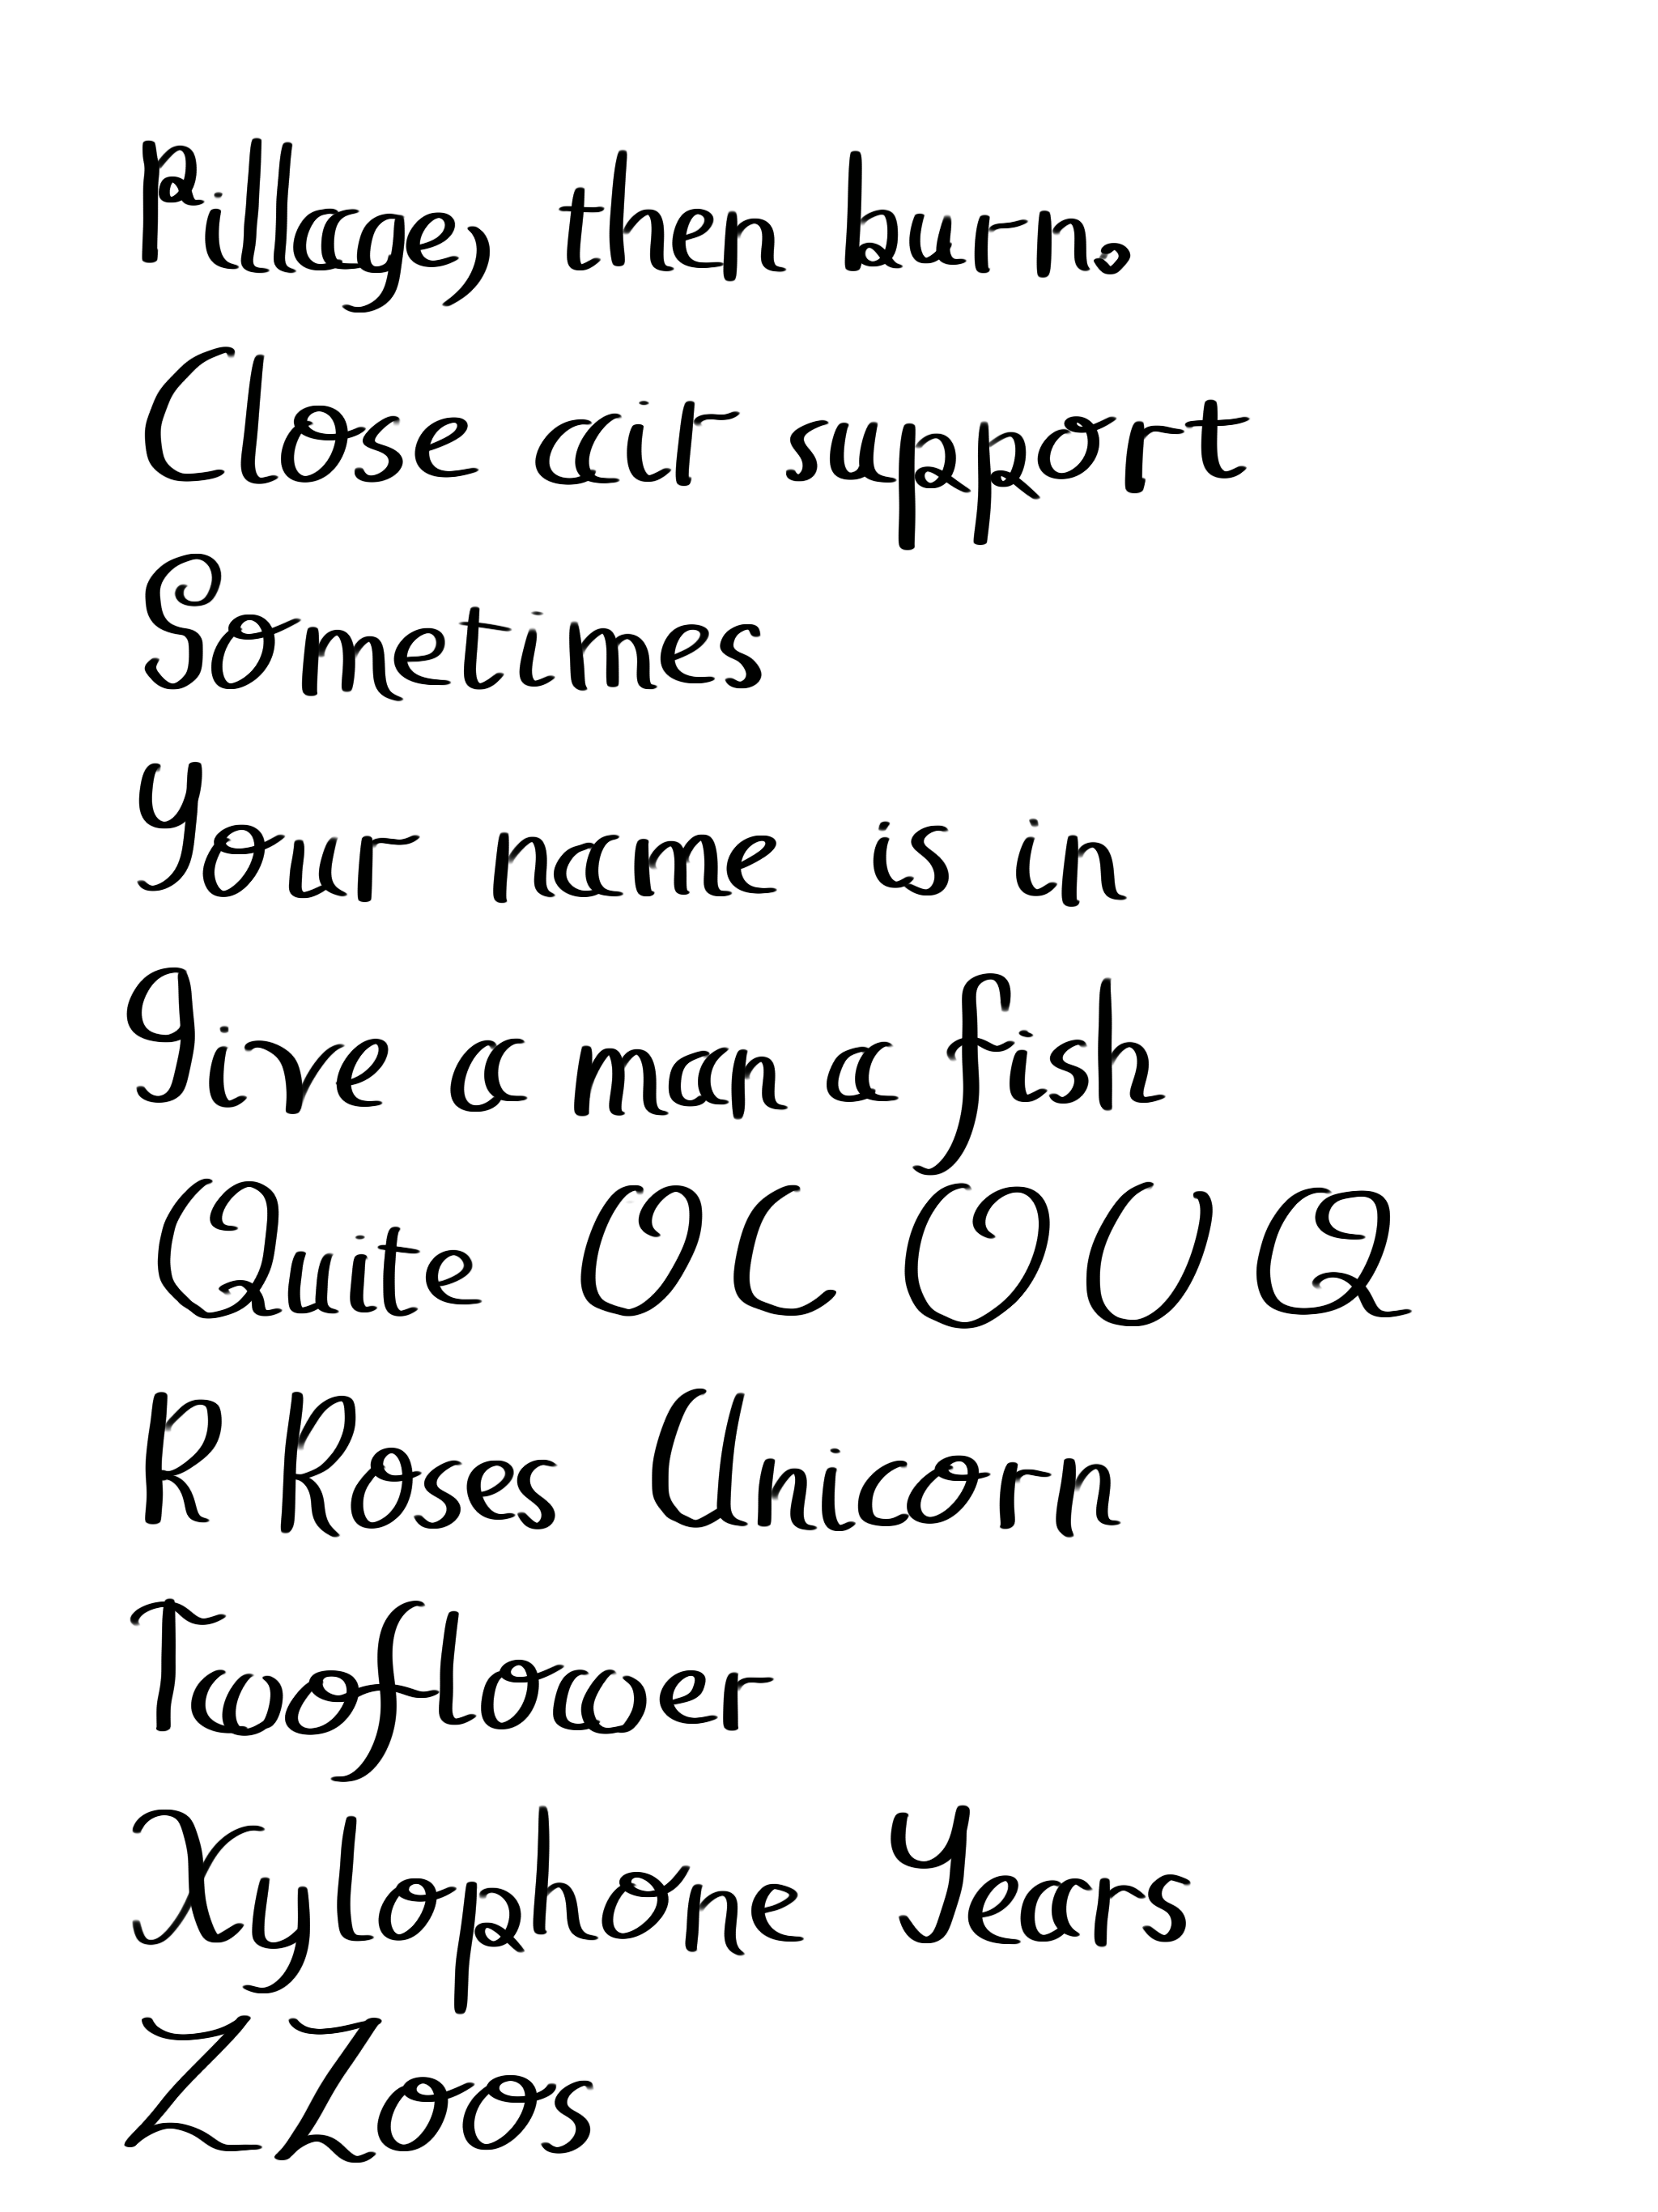 Pillage, then burn.
Close air support
Sometimes
Your name is in
Give a man a fish
Quite O C O U Q
R Roses Unicorn
Twoflower
Xylophone Years
Z Zoos